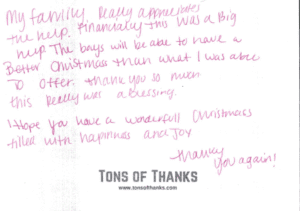 My family Really appreciates
the help. Financially this was a Big
help The boys will be able to have a
Better Christmass than what I was able
TO Offer. thank you so much
this Really was a blessing.
I Hope you have a wonderfull Christmass
filled with happiness and Joy
thank
you again!
TONS OF THANKS
www.tonsofthanks.com